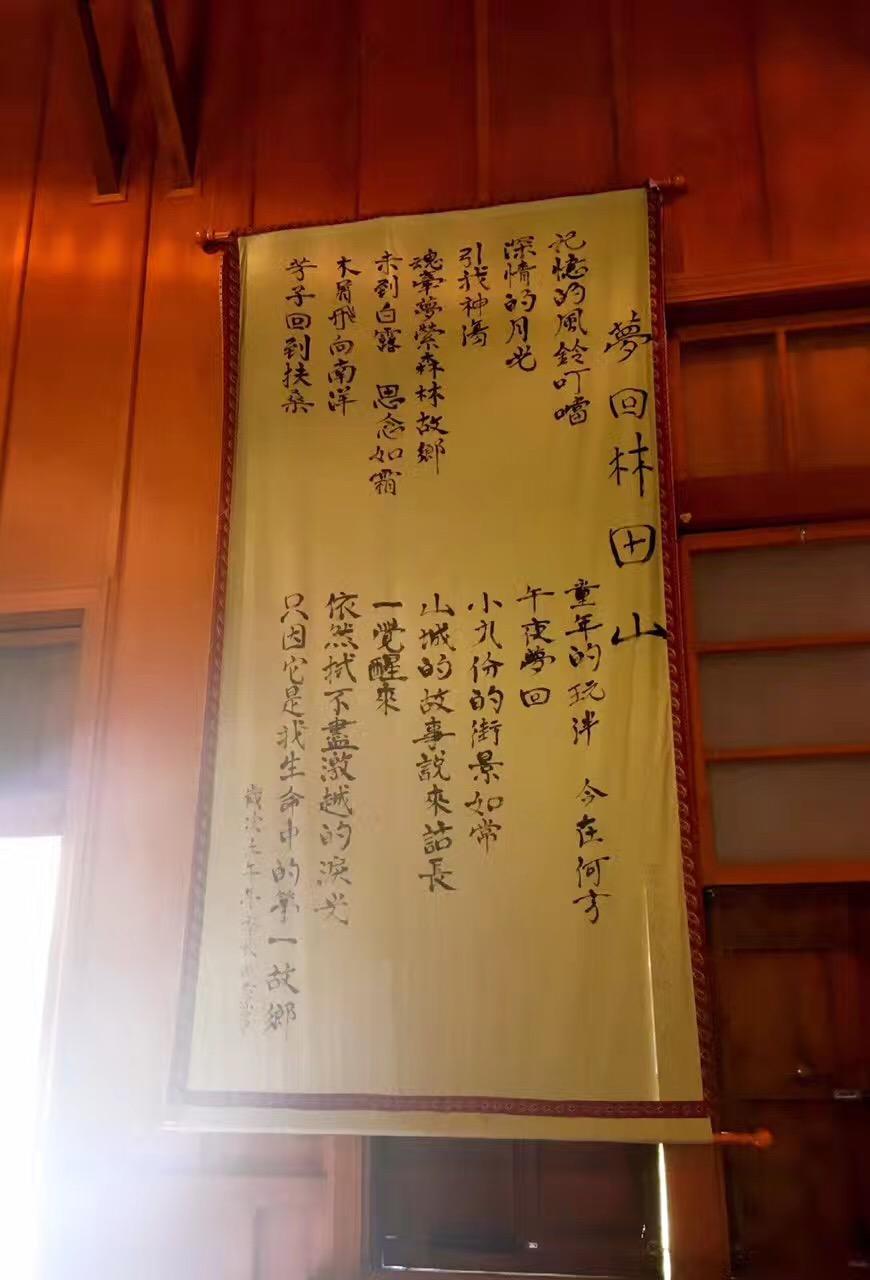 夢回林田山
記憶的風鈴叮噹
深情的月光
引我神傷
魂牽夢縈森林故鄉
未到白露 思念如霜
木屑飛向南洋
芳子回到扶桑
童年的玩泮 今在何方
午夜夢回
小九份的街景如常
山城的故事說來話長
一覺醒來
依然拭不盡激越的淚光
只因它是我生命中的第一故鄉
歲次